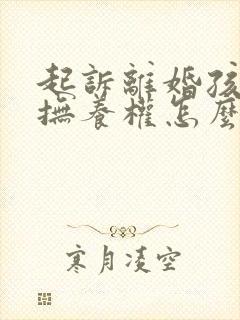 起訴離婚孩
撫養權怎麼
寒月凌空